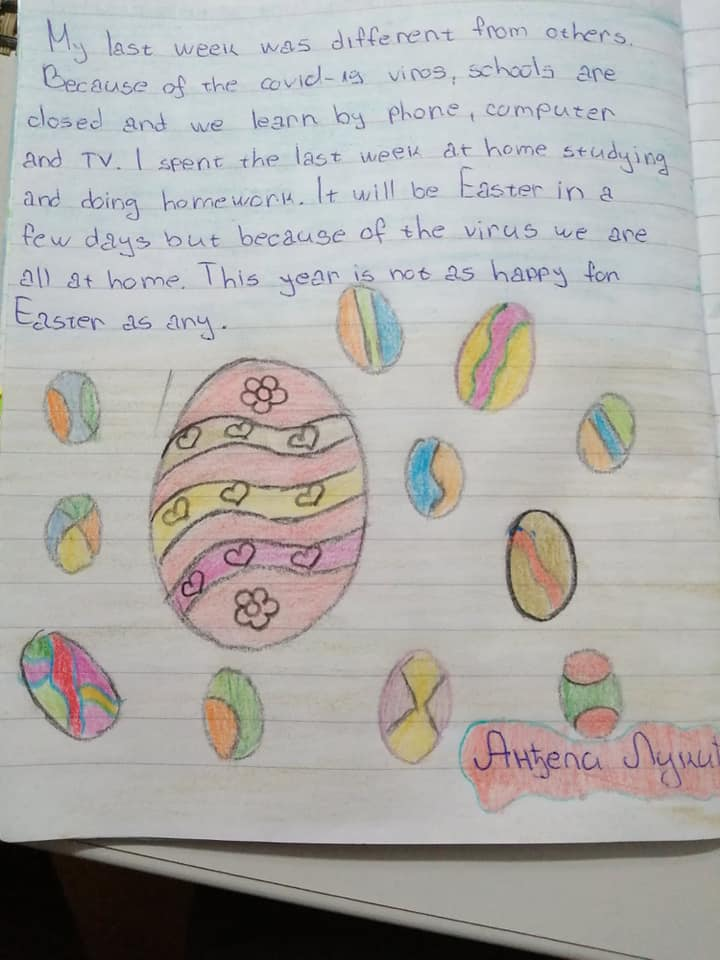 My last week was different from others.
Because of the covid-19 viros, schools are
closed and we learn by phone, computer
and TV. I spent the last week at home studying
and doing homework. It will be Easter in a
few days but because of the virus we are
all at home. This year is not as happy for
Easter as any.
Анђела